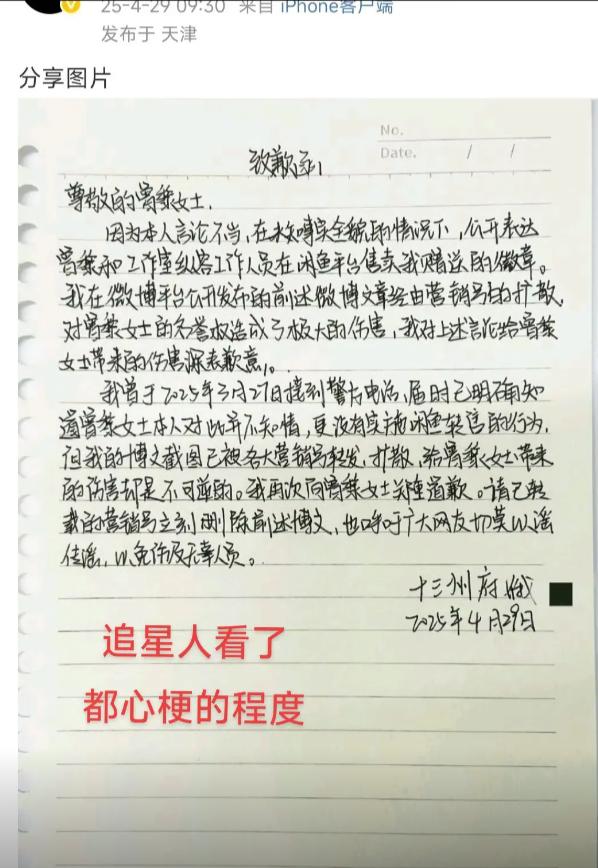 25-4-29 09:30 来自 iPhone客户端
发布于 天津
分享图片
No.
Date. / /
致歉函
尊敬的曾黎女士,
因为本人言论不当,在未核实全貌的情况下,公开表达
曾黎和工作室纵容工作人员在闲鱼平台售卖我赠送的徽章。
我在微博平台公开发布的前述微博文章经由营销号的扩散,
对曾黎女士的名誉权造成了极大的伤害,我对上述言论给曾黎
女士带来的伤害深表歉意。
我曾于2025年3月27日接到警方电话,届时已明确知
道曾黎女士本人对此并不知情,更没有实施闲鱼转售的行为,
但我的博文截图已被各大营销号转发、扩散,给曾黎女士带来
的伤害却是不可逆的。我再次向曾黎女士关锤道歉。请已转
载的营销号立刻删除前述博文,也呼吁广大网友切莫以谣
传谣,以免伤及无辜人员。
十三州府娥
2025年4月29日
追星人看了
都心梗的程度